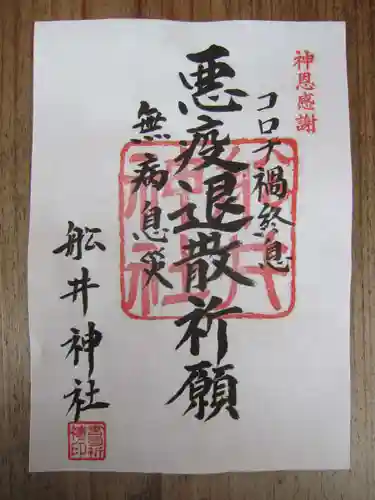 神恩感謝
コロナ禍終息
悪疫退散祈願
無病息災
船井神社